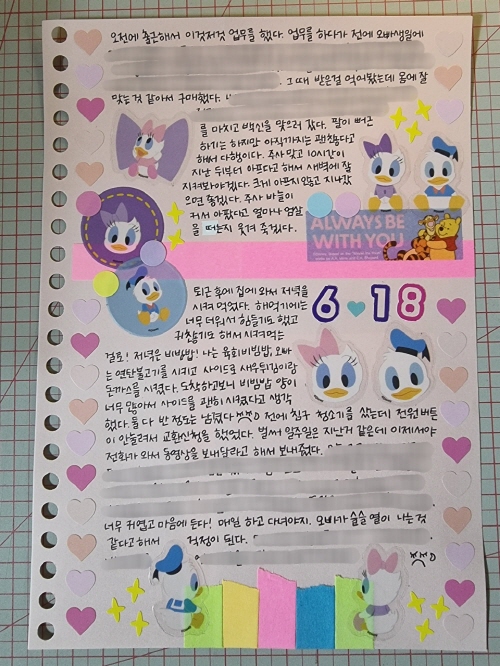 오전에 출근해서 이것저것 업무를 했다. 업무를 하다가 전에 오빠생일에
그때 받은걸 먹어봤는데 몸에 잘
맞는것 같아서 구매했다.
를 마치고 백신을 맞으러 갔다. 팔이 뻐근
하기는 하지만 아직까지는 괜찮다고
해서 다행이다. 주사 맞고 10시간이
지난 뒤부터 아프다고 해서 새벽에 잘
지켜봐야겠다. 크게 아프지않고 지나갔
으면 좋겠다. 주사 바늘이
커서 아팠다고 얼마나 엄살
을 떠는지 웃겨 죽겠다.
ALWAYS BE
WITH YOU
퇴근 후에 집에 와서 저녁을
시켜 먹었다. 해먹기에는
너무 더워서 힘들기도 했고
귀찮기도 해서 시켜먹는
6 18
걸로! 저녁은 비빔밥! 나는 육회비빔밥, 오빠
는 연탄불고기를 시키고 사이드로 새우튀김이랑
돈까스를 시켰다. 도착하고보니 비빔밥 양이
너무 많아서 사이드를 괜히 시켰다고 생각
했다. 둘 다 반 정도는 남겼다 전에 친구 청소기를 샀는데 전원 버튼
이 안눌려서 교환신청을 했었다. 벌써 일주일은 지난거 같은데 이제서야
전화가 와서 동영상을 보내달라고 해서 보내줬다.
너무 귀엽고 마음에 든다! 매일 하고 다녀야지. 오빠가 슬슬 열이 나는것
같다고 해서 걱정이 된다.